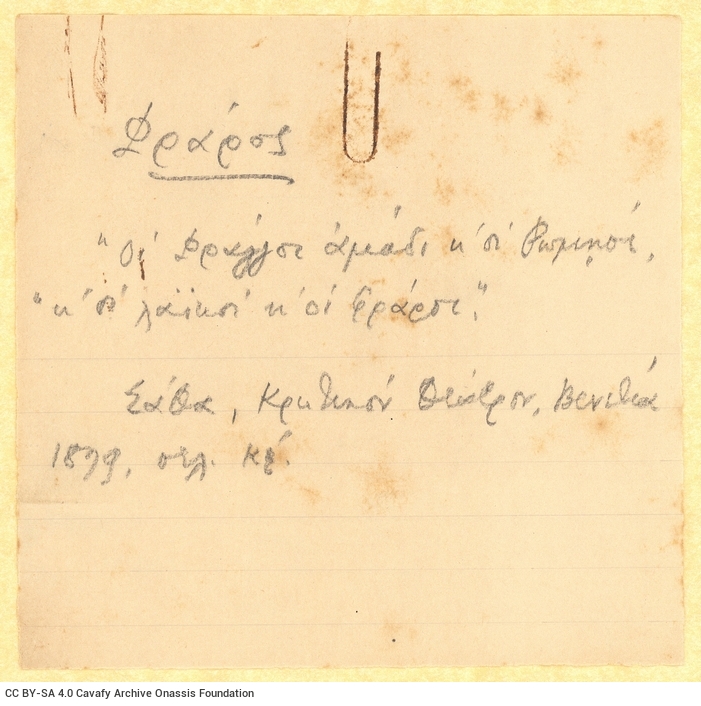 Φράρος
"Οι Φράγγοι ἀμάδι κ' οἱ Ρωμηοί,
"κ' οἱ λαϊκοί κ' οἱ Φράροι".
Σάθα, Κρητικόν Θέατρον, Βενετία
1879, σελ.
CC BY-SA 4.0 Cavafy Archive Onassis Foundation